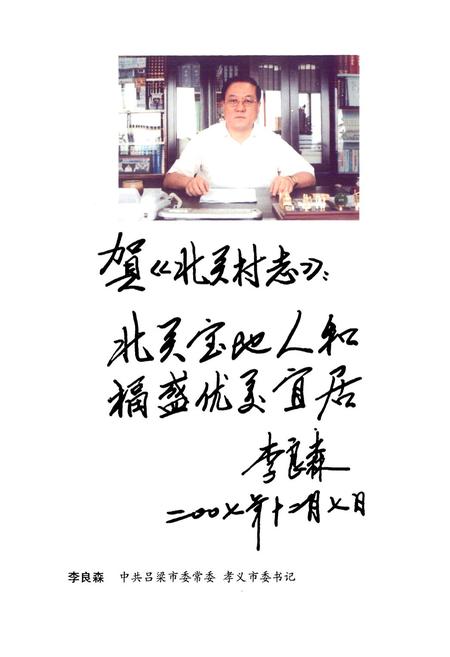 贺《北关村志》：
北关宝地人和
福盛优美宜居
李良森
二00七年十二月七日
李良森 中共吕梁市委常委 孝义市委书记